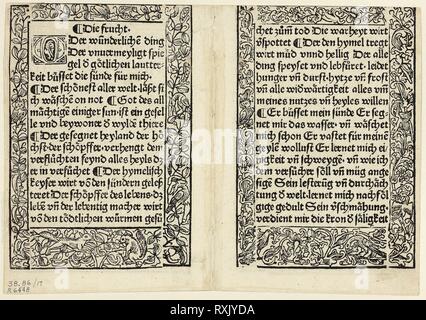 ¶Die frucht·
Der wũnderlichẽ ding
Der vnuermeyligt spie
gel ď gôtlichen lautter-
keit bũsset die sũnde fur mich·
¶Der schônest aller welt·lâst si
ch wâschẽ on not ¶Got des all
mâchtige einiger sun·ist ein gesel
le vnd beywoner ď wylď thiere
¶Der gesegnet heyland der hô
chst·der schôpffer·verhengt dem
verflũchten feynd alles heyls·dz
er in versũche ¶Der hymelisch
keyser wirt võ den sũndern gelest
teret Der schôpffer des lebens·dz
lebẽ vñ der lebentig macher wirt
võ den tôdtlichen wũrmen gesũ
chet zũm tod Die warheyt wirt
v̈spottet ¶Der den hymel tregt
wirt mũd vnd hellig Der alle
ding speyset vnd lebfũret·leidet
hunger vñ durst·hytze vñ frost
vñ alle widwârtigkeit alles vmb
meines nutzes vñ heyles willen
¶Er bũsset mein sũnde Er seg
net mir das wasser·vñ wâschet
mich schon Er vastet fũr meine
geylẽ wollust Er lernet mich ei
nigkeit vñ schweygẽ·vñ wie ich
dem versũcher sôll vñ mũg ange
sigẽ Sein lesterũg vñ durchâch
tũg ď welt·lernet mich nachfôl
gige gedult Sein v̈schmâhung·
verdient mir die kron ď sâligkeit
38.86/17
R6448
alamy
RXJYDA